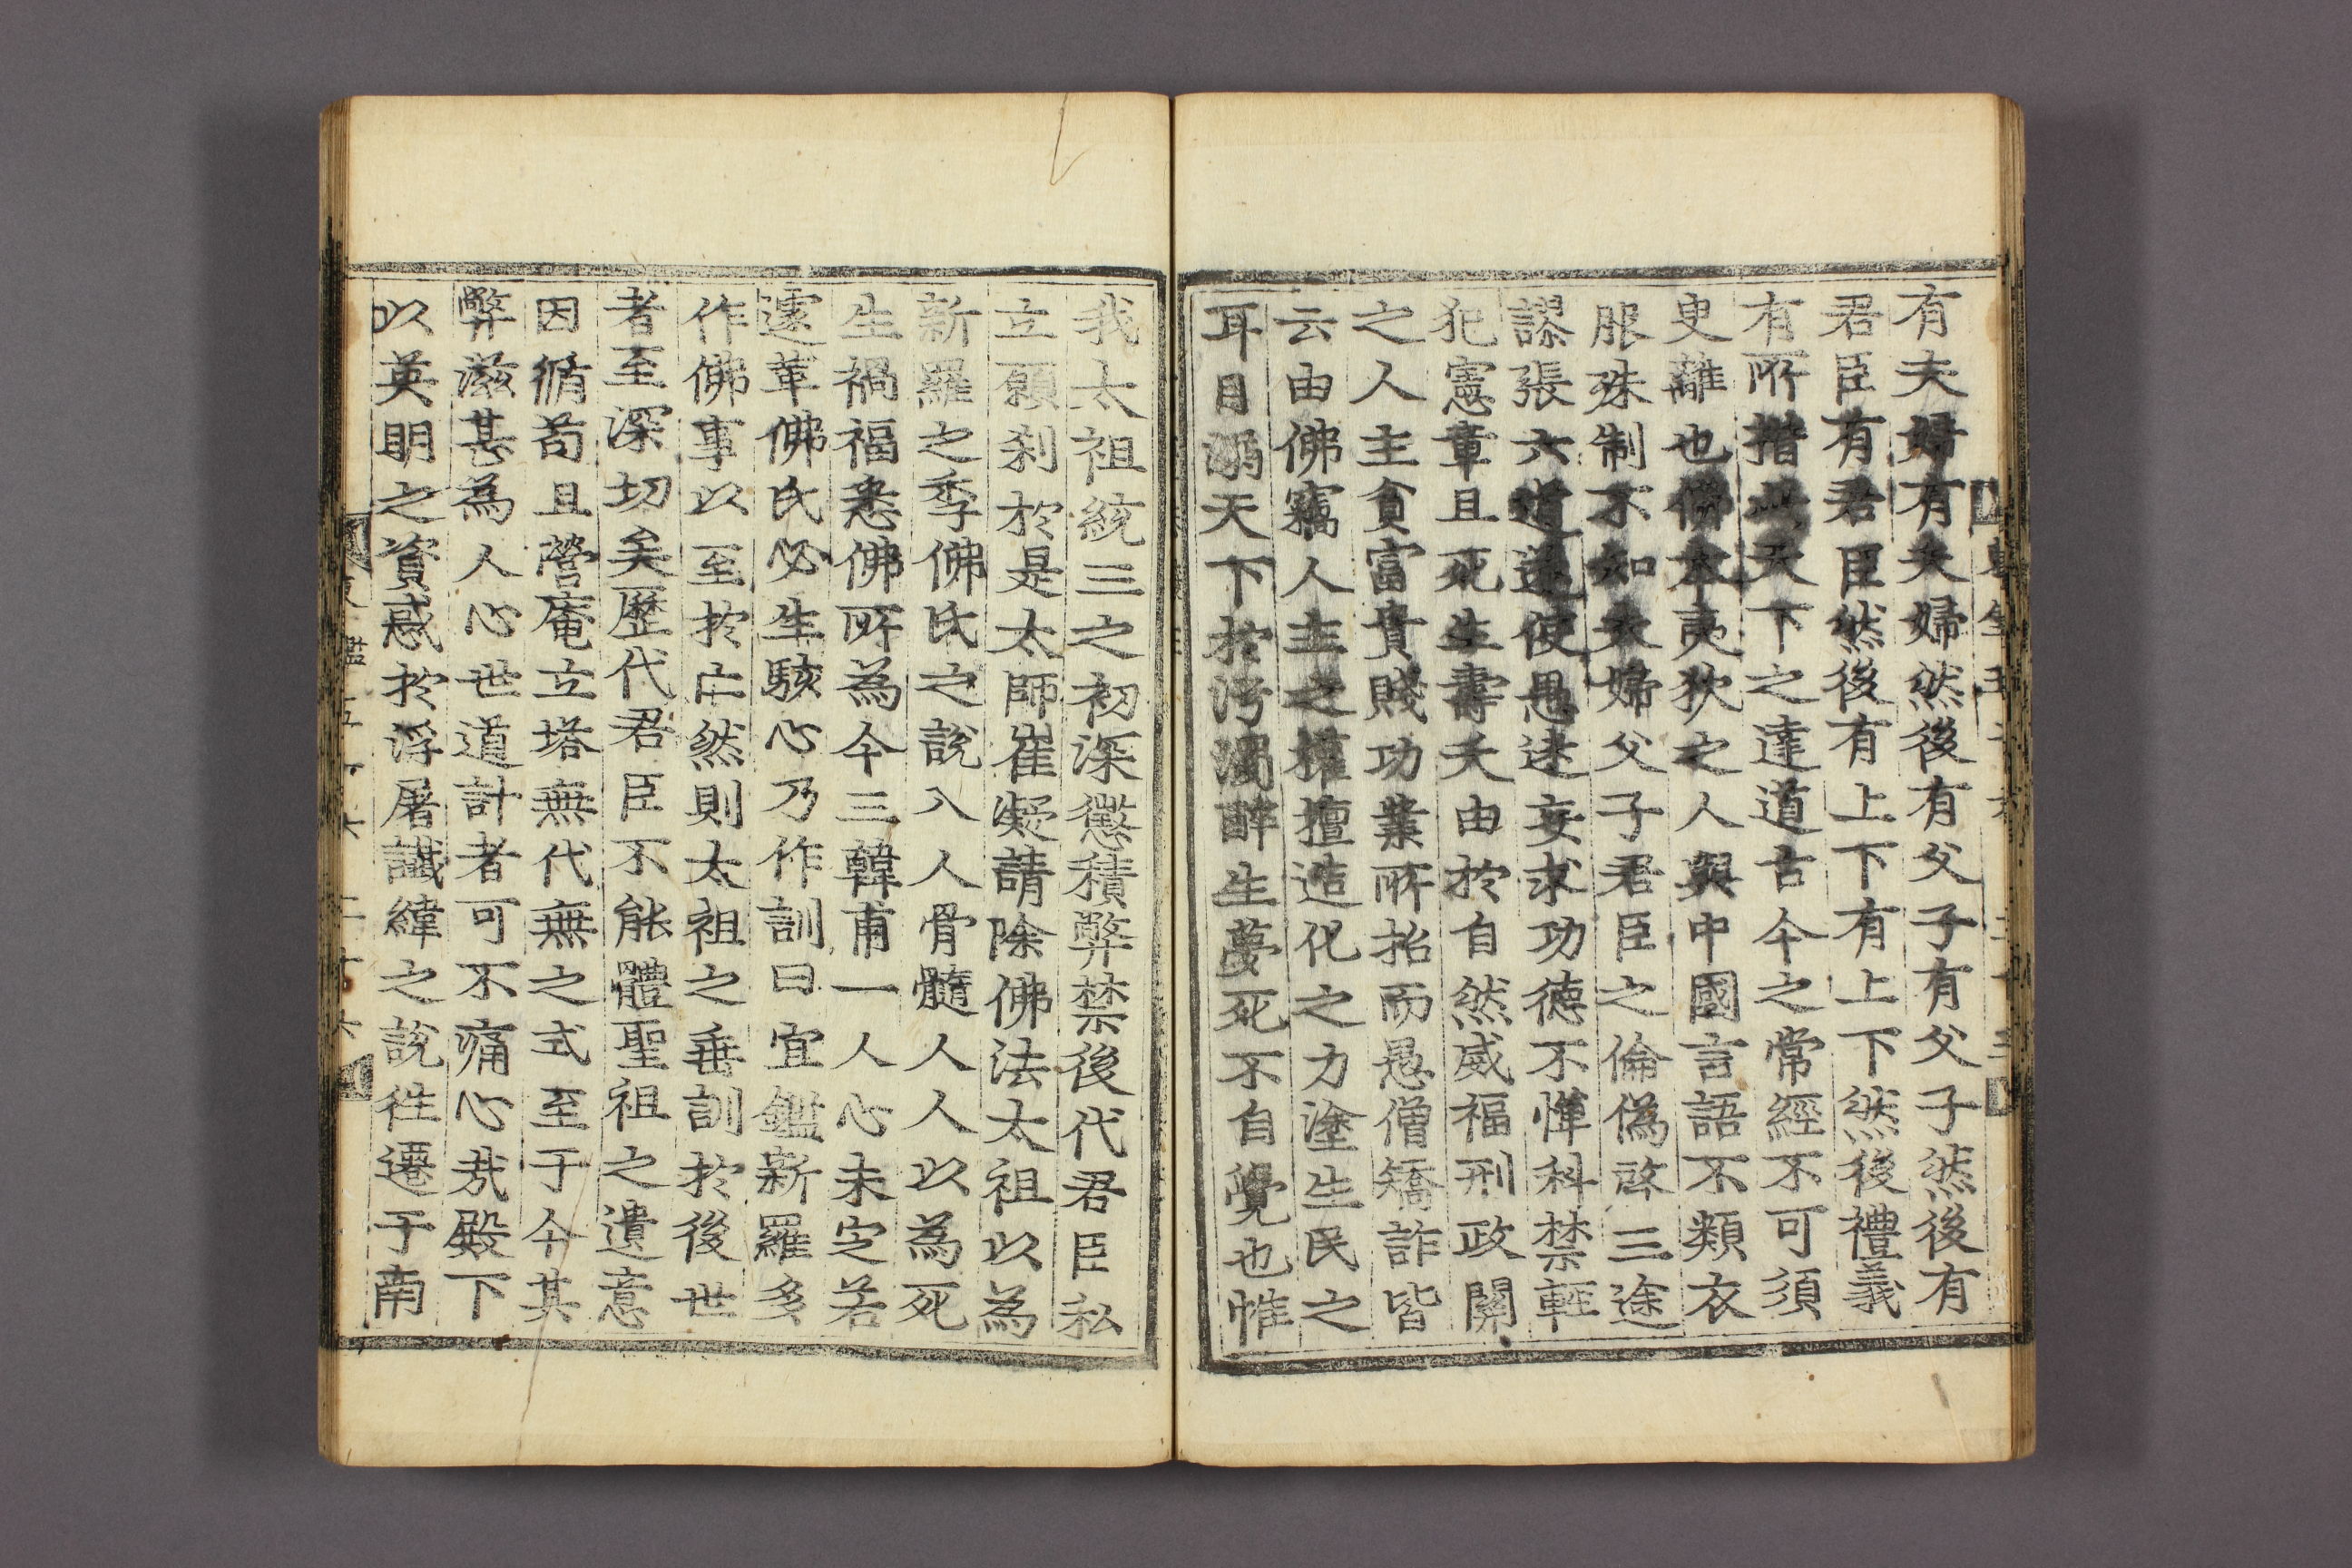 有夫婦有夫婦然後有父子有父子然後有
君臣有君臣然後有上下有上下然後禮義
有所措此天下之達道古今之常經不可須
臾離也佛本夷狄之人與中國言語不類衣
服殊制不知夫婦父子君臣之倫偽啓三途
謬張六道遂使愚迷妄求功德不憚科禁輕
犯憲章且死生壽夭由於自然威福刑政關
之人主貧富貴賤功業所招而愚僧矯詐皆
云由佛竊人主之權擅造化之力塗生民之
耳目溺天下於汚濁醉生夢死不自覺也惟
我太祖統三之初深懲積弊禁後代君臣私
立願刹於是太師崔凝請除佛法太祖以為
新羅之季佛氏之說入人骨髓人人以為死
生禍福悉佛所為今三韓甫一人心未定若
遽革佛氏必生駭心乃作訓曰宜鑑新羅多
作佛事以至於亡然則太祖之垂訓於後世
者至深切矣歷代君臣不能體聖祖之遺意
因循苟且營庵立塔無代無之式至于今其
弊滋甚為人心世道計者可不痛心哉殿下
以英明之資惑於浮屠讖緯之說徃遷于南